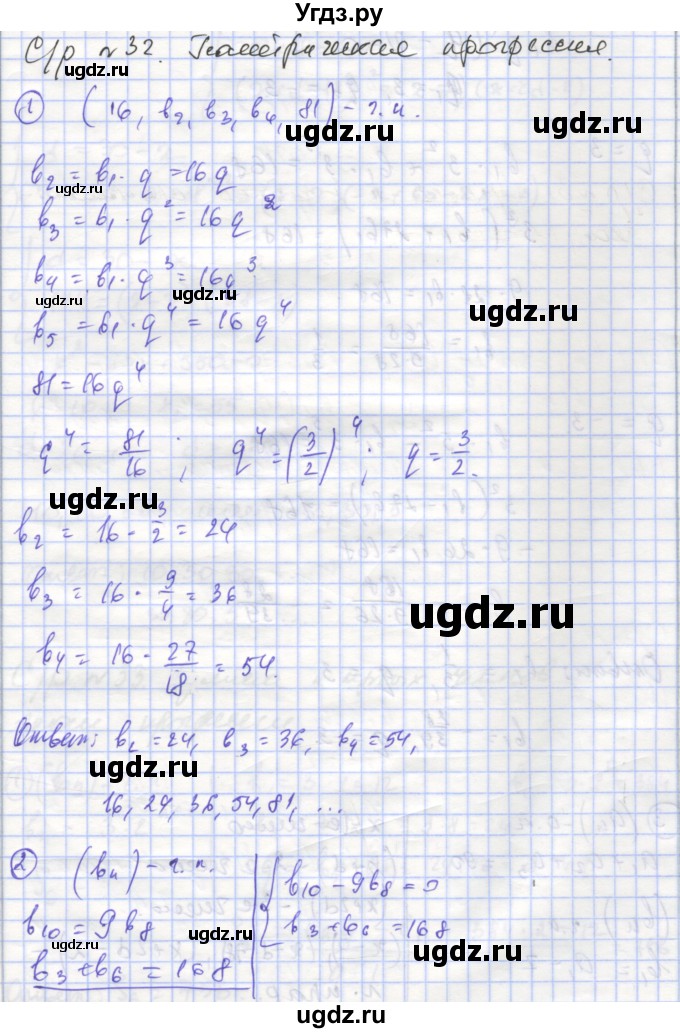 Угдз.ру
С/р №32. Геометрическая прогрессия.
ugdz.ru
① (16, b₂, b₃, b₄, 81) – г.п.
ugdz.ru
b₂ = b₁ · q = 16q
ugdz.ru
b₃ = b₁ · q² = 16q²
ugdz.ru
b₄ = b₁ · q³ = 16q³
ugdz.ru ugdz.ru
b₅ = b₁ · q⁴ = 16q⁴
ugdz.ru
81 = 16q⁴
q⁴ = 81/16 ; q⁴ = (3/2)⁴ ; q = 3/2.
ugdz.ru
b₂ = 16 · 3/2 = 24
b₃ = 16 · 9/4 = 36
ugdz.ru
b₄ = 16 · 27/18 = 54.
Ответ: b₂ = 24, b₃ = 36, b₄ = 54,
ugdz.ru
16, 24, 36, 54, 81, ...
② (bₙ) – г.п.
b₁₀ – 9b₈ = 0
b₁₀ = 9b₈
b₃ + b₆ = 168
ugdz.ru
b₃ + b₆ = 168
ugdz.ru
ugdz.ru